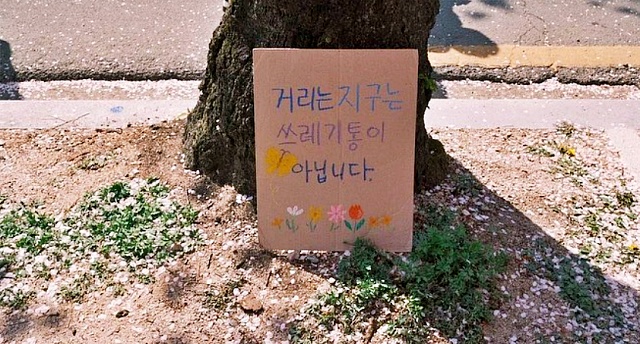 거리는 지구는
쓰레기통이
아닙니다.